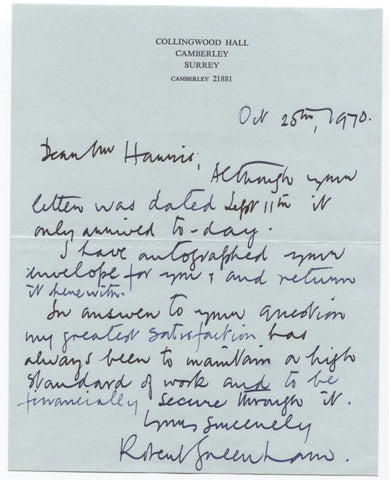 COLLINGWOOD HALL
CAMBERLEY
SURREY
CAMBERLEY 21881
Oct 25th, 1970.
Dear Mr Harris,
Although your
letter was dated Sept 11th it
only arrived to-day.
I have autographed your
envelope for you, and return
it herewith.
In answer to your question
my greatest satisfaction has
always been to maintain a high
standard of work and to be
financially secure through it.
Yours sincerely
Robert Greenham.